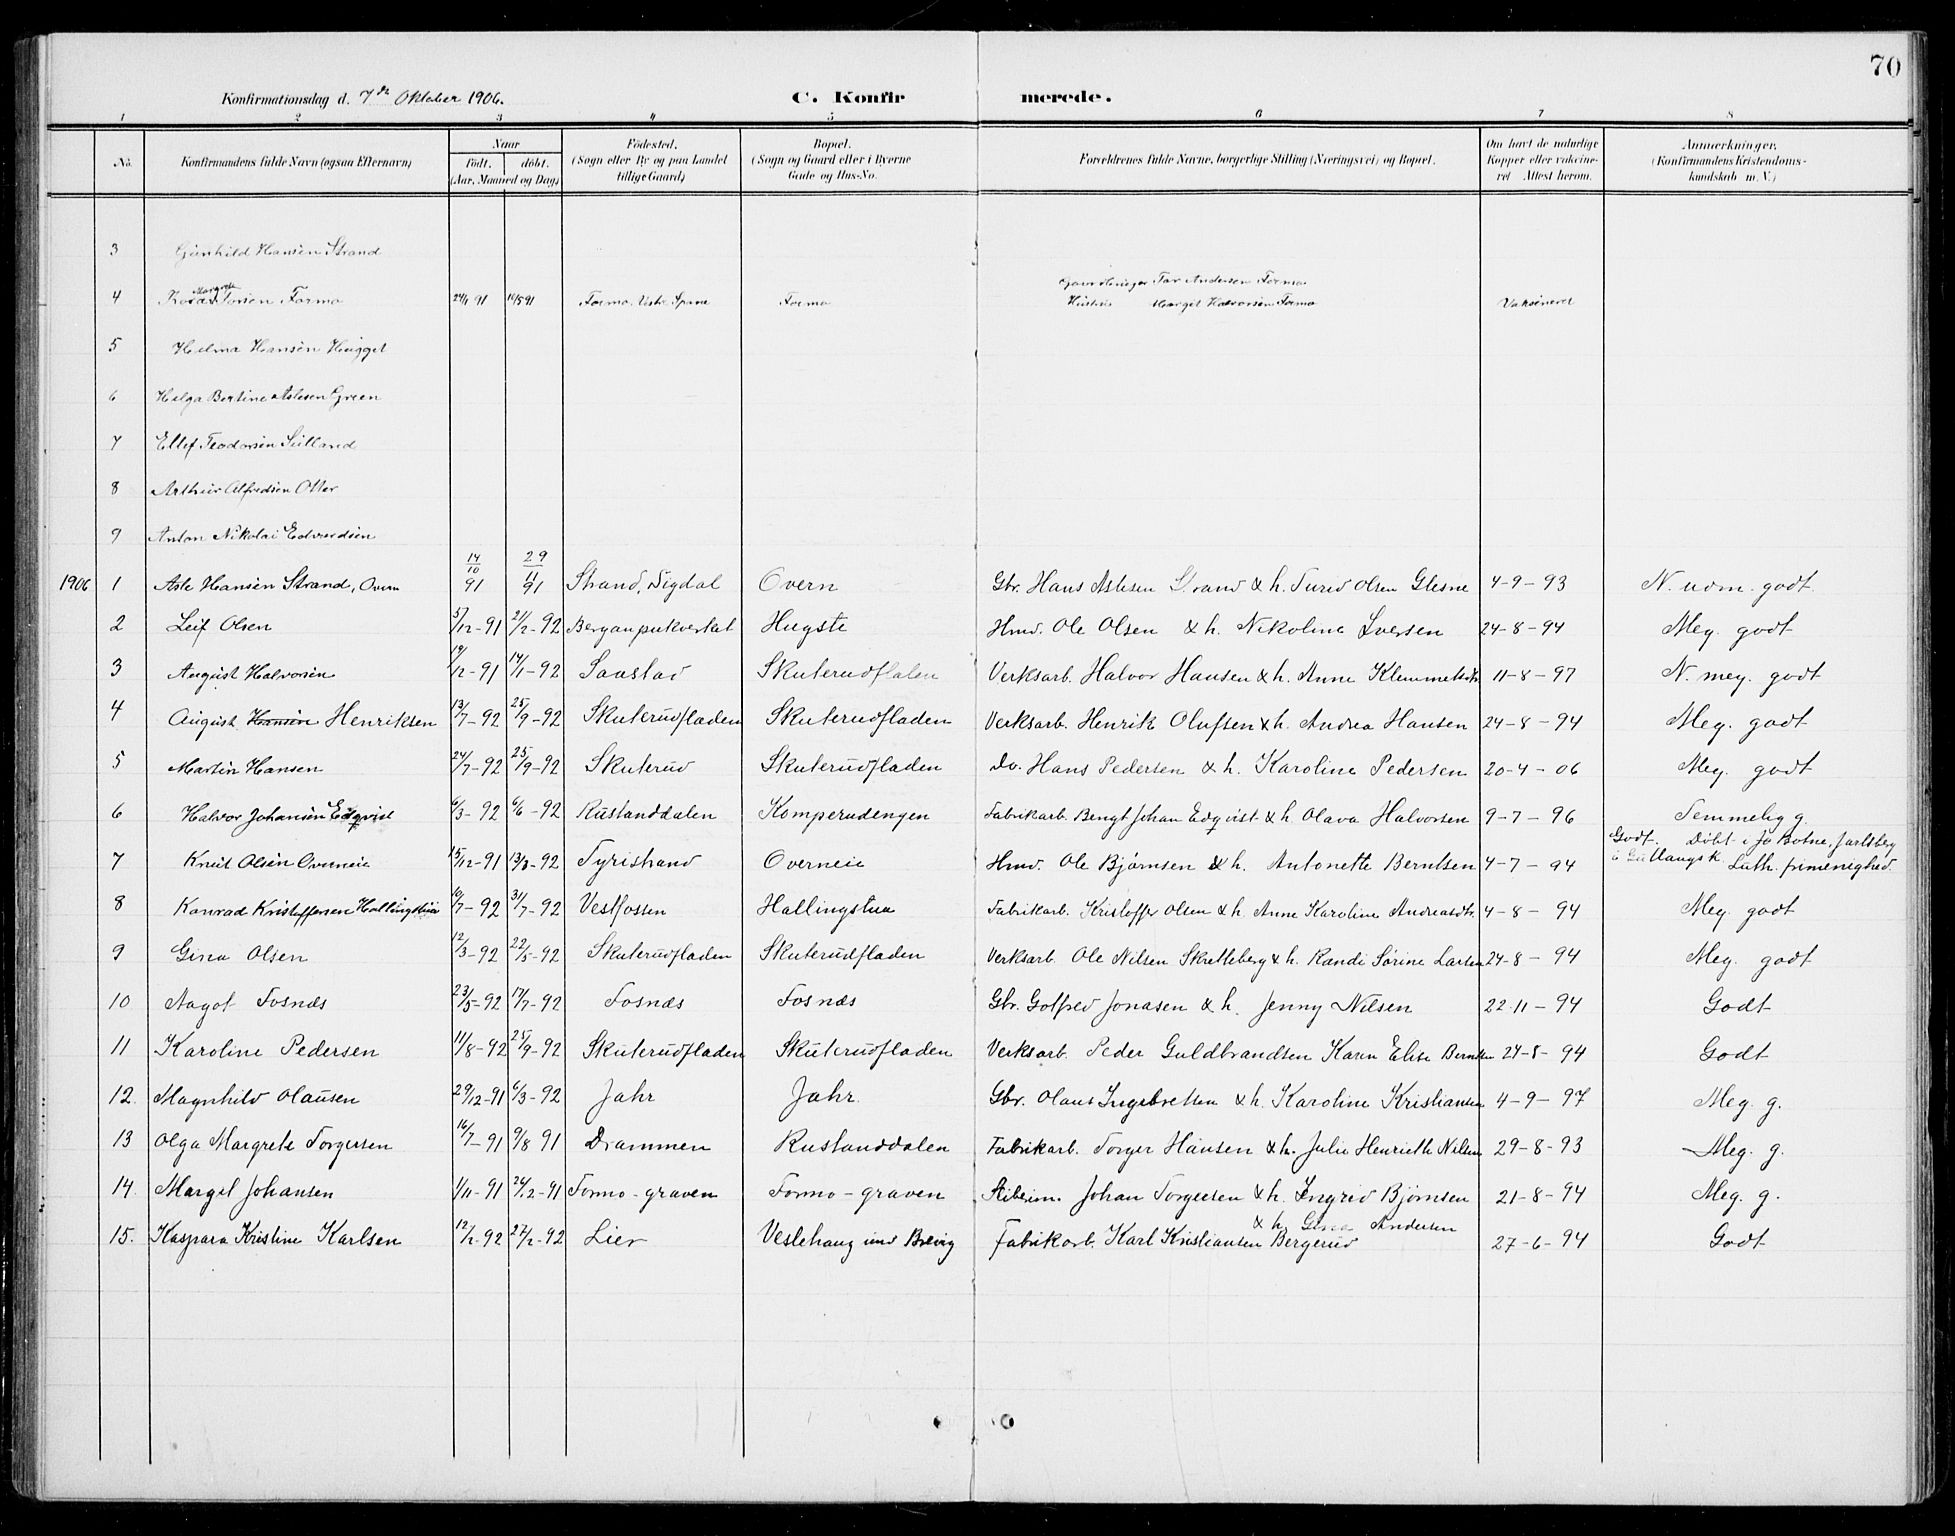 70
Konfirmationsdag d. 7de Oktober 1906. C. Konfirmerede.
1 2 3 4 5 6 7 8
No. Konfirmandens fulde Navn (ogsaa Efternavn) Naar født. døbt. (Aar, Maaned og Dag) Fødested. (Sogn eller By og paa Landet tillige Gaard) Bopæl. (Sogn og Gaard eller i Byerne Gade og Hus-No. Forældrenes fulde Navne, borgerlige Stilling (Næringsvei) og Bopæl. Om havt de naturlige Kopper eller vakcineret Attest herom. Anmerkninger. (Konfirmandens Kristendomskundskab m. V.)
3 Gunhild Hansen Strand
4 Margrete Torsen Formo 91 91 Formo Vestre Formo Tor Andersen Formo Hustru Marget Halvorsen Formo Vaksineret
5 Helma Hansen Hugget
6 Helga Bertine Aslesen Green
7 Ellef Teodorsen
8 Arthur Alfredsen Otter
9 Anton Nikolai Edvardsen
1906 1 Asle Hansen Strand, Overn 14/10 91 29/11 91 Strand, Sigdal Overn Gbr. Hans Aslesen Strand & h. Turid Olsen Glesne 4-9-93 N. udm. godt.
2 Leif Olsen 5/12-91 21/2-92 Hugste Hmd. Ole Olsen & h. Nikoline Iversen 24-8-94 Meg. godt
3 August Halvorsen 19/12-91 14/1-92 Saastad Skuterudflaten Verksarb. Halvor Hansen & h. Anne Klemmetsdtr. 11-8-97 N. meg. godt
4 August Hansen Henriksen 13/7-92 25/9-92 Skuterudfladen Skuterudfladen Verksarb. Henrik Olufsen & h. Andrea Hansen 24-8-94 Meg. godt
5 Martin Hansen 24/7-92 25/9-92 Skuterud Skuterudfladen Do. Hans Pedersen & h. Karoline Pedersen 20-4-06 Meg. godt
6 Halvor Johansen Edqvist 6/3-92 6/6-92 Rustanddalen Komperudengen Fabrikarb. Bengt Johan Edqvist & h. Olava Halvorsen 9-7-96 Temmelig g.
7 Knut Olsen Overneie 15/12-91 13/3-92 Tyristrand Overneie Hmd. Ole Bjørnsen & h. Antonette Berntsen 4-7-94 Godt. Døbt i Botne, Jarlsberg Luth. frimenighed.
8 Konrad Kristoffersen Hallingstua 10/7-92 31/7-92 Vestfossen Hallingstua Fabrikarb. Kristoffer Olsen & h. Anne Karoline Andreasdtr. 4-8-94 Meg. godt
9 Gina Olsen 12/3-92 22/5-92 Skuterudfladen Skuterudfladen Verksarb. Ole Nilsen Skretteberg & h. Randi Sørine Larsen 24-8-94 Meg. godt
10 Aagot Fosnæs 23/5-92 17/7-92 Fosnæs Fosnæs Gbr. Gotfred Jonasen & h. Jenny Nilsen 22-11-94 Godt
11 Karoline Pedersen 11/8-92 25/9-92 Skuterudfladen Skuterudfladen Verksarb. Peder Guldbrandsen Karen Elise Berntsen 24-8-94 Godt
12. Magnhild Olausen 29/12-91 6/3-92 Jahr Jahr. Gbr. Olaus Ingebretsen & h. Karoline Kristiansen 4-9-97 Meg. g.
13 Olga Margrete Torgersen 16/7-91 9/8 91 Drammen Rustanddalen Fabrikarb. Torger Hansen & h. Julie Henriette Nilsen 29-8-93 Meg. g.
14. Margit Johansen 1/11-91 26/12-91 Formo-graven Formo-graven Arbeim. Johan Torgersen & h. Ingrid Bjørnsen 21-8-94 Meg. g.
15. Kaspara Kristine Karlsen 12/1-92 27/2-92 Lier Veslehaug und Brevig Fabrikarb. Karl Kristiansen Bergerud & h. Gina Andersen 27-6-94 Godt